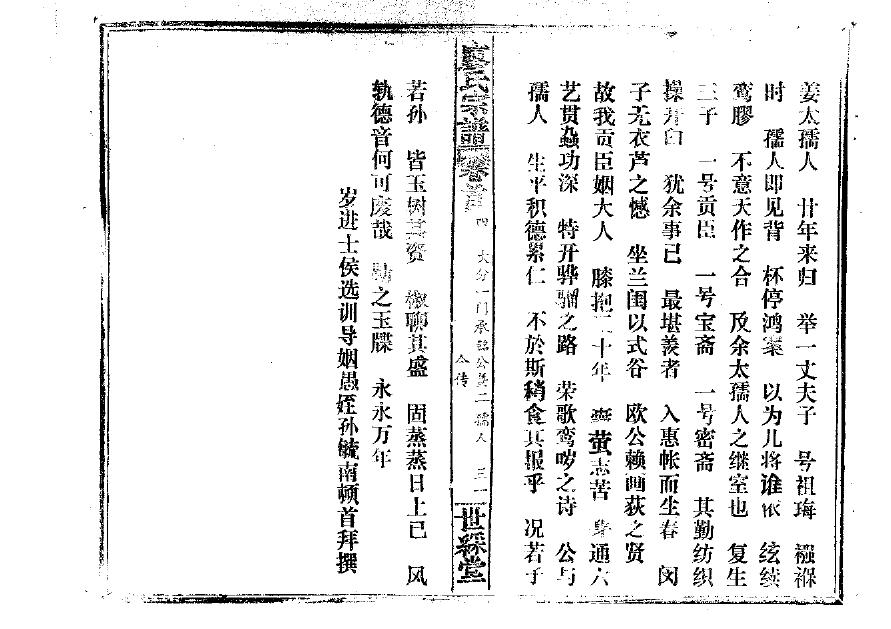 姜太孺人 廿年来归 举一丈夫子 号祖珻 襁褓
时 孺人即见背 杯停鸿案 以为儿将谁依 弦续
鸾胶 不意天作之合 及余太孺人之继室也 复生
三子 一号贡臣 一号宝斋 一号密斋 其勤纺织
操井臼 犹余事已 最堪羡者 入惠帐而生春 闵
子无衣芦之憾 坐兰闺以式谷 欧公赖画荻之贤
故我贡臣姻大人 膝抱二十年 萤志苦 身通六
艺贯蟊功深 特开骅骝之路 荣歌鸾哕之诗 公与
孺人 生平积德累仁 不於斯稍食其报乎 况若子
廖氏宗谱 卷首 四 大分一门承 公姜二孺人 合传 三一 世綵堂
若孙 皆玉树其资 椒聊其盛 固蒸蒸日上已 风
轨德音何可废哉 之玉牒 永永万年
岁进士侯选训导姻愚姪孙毓南顿首拜撰